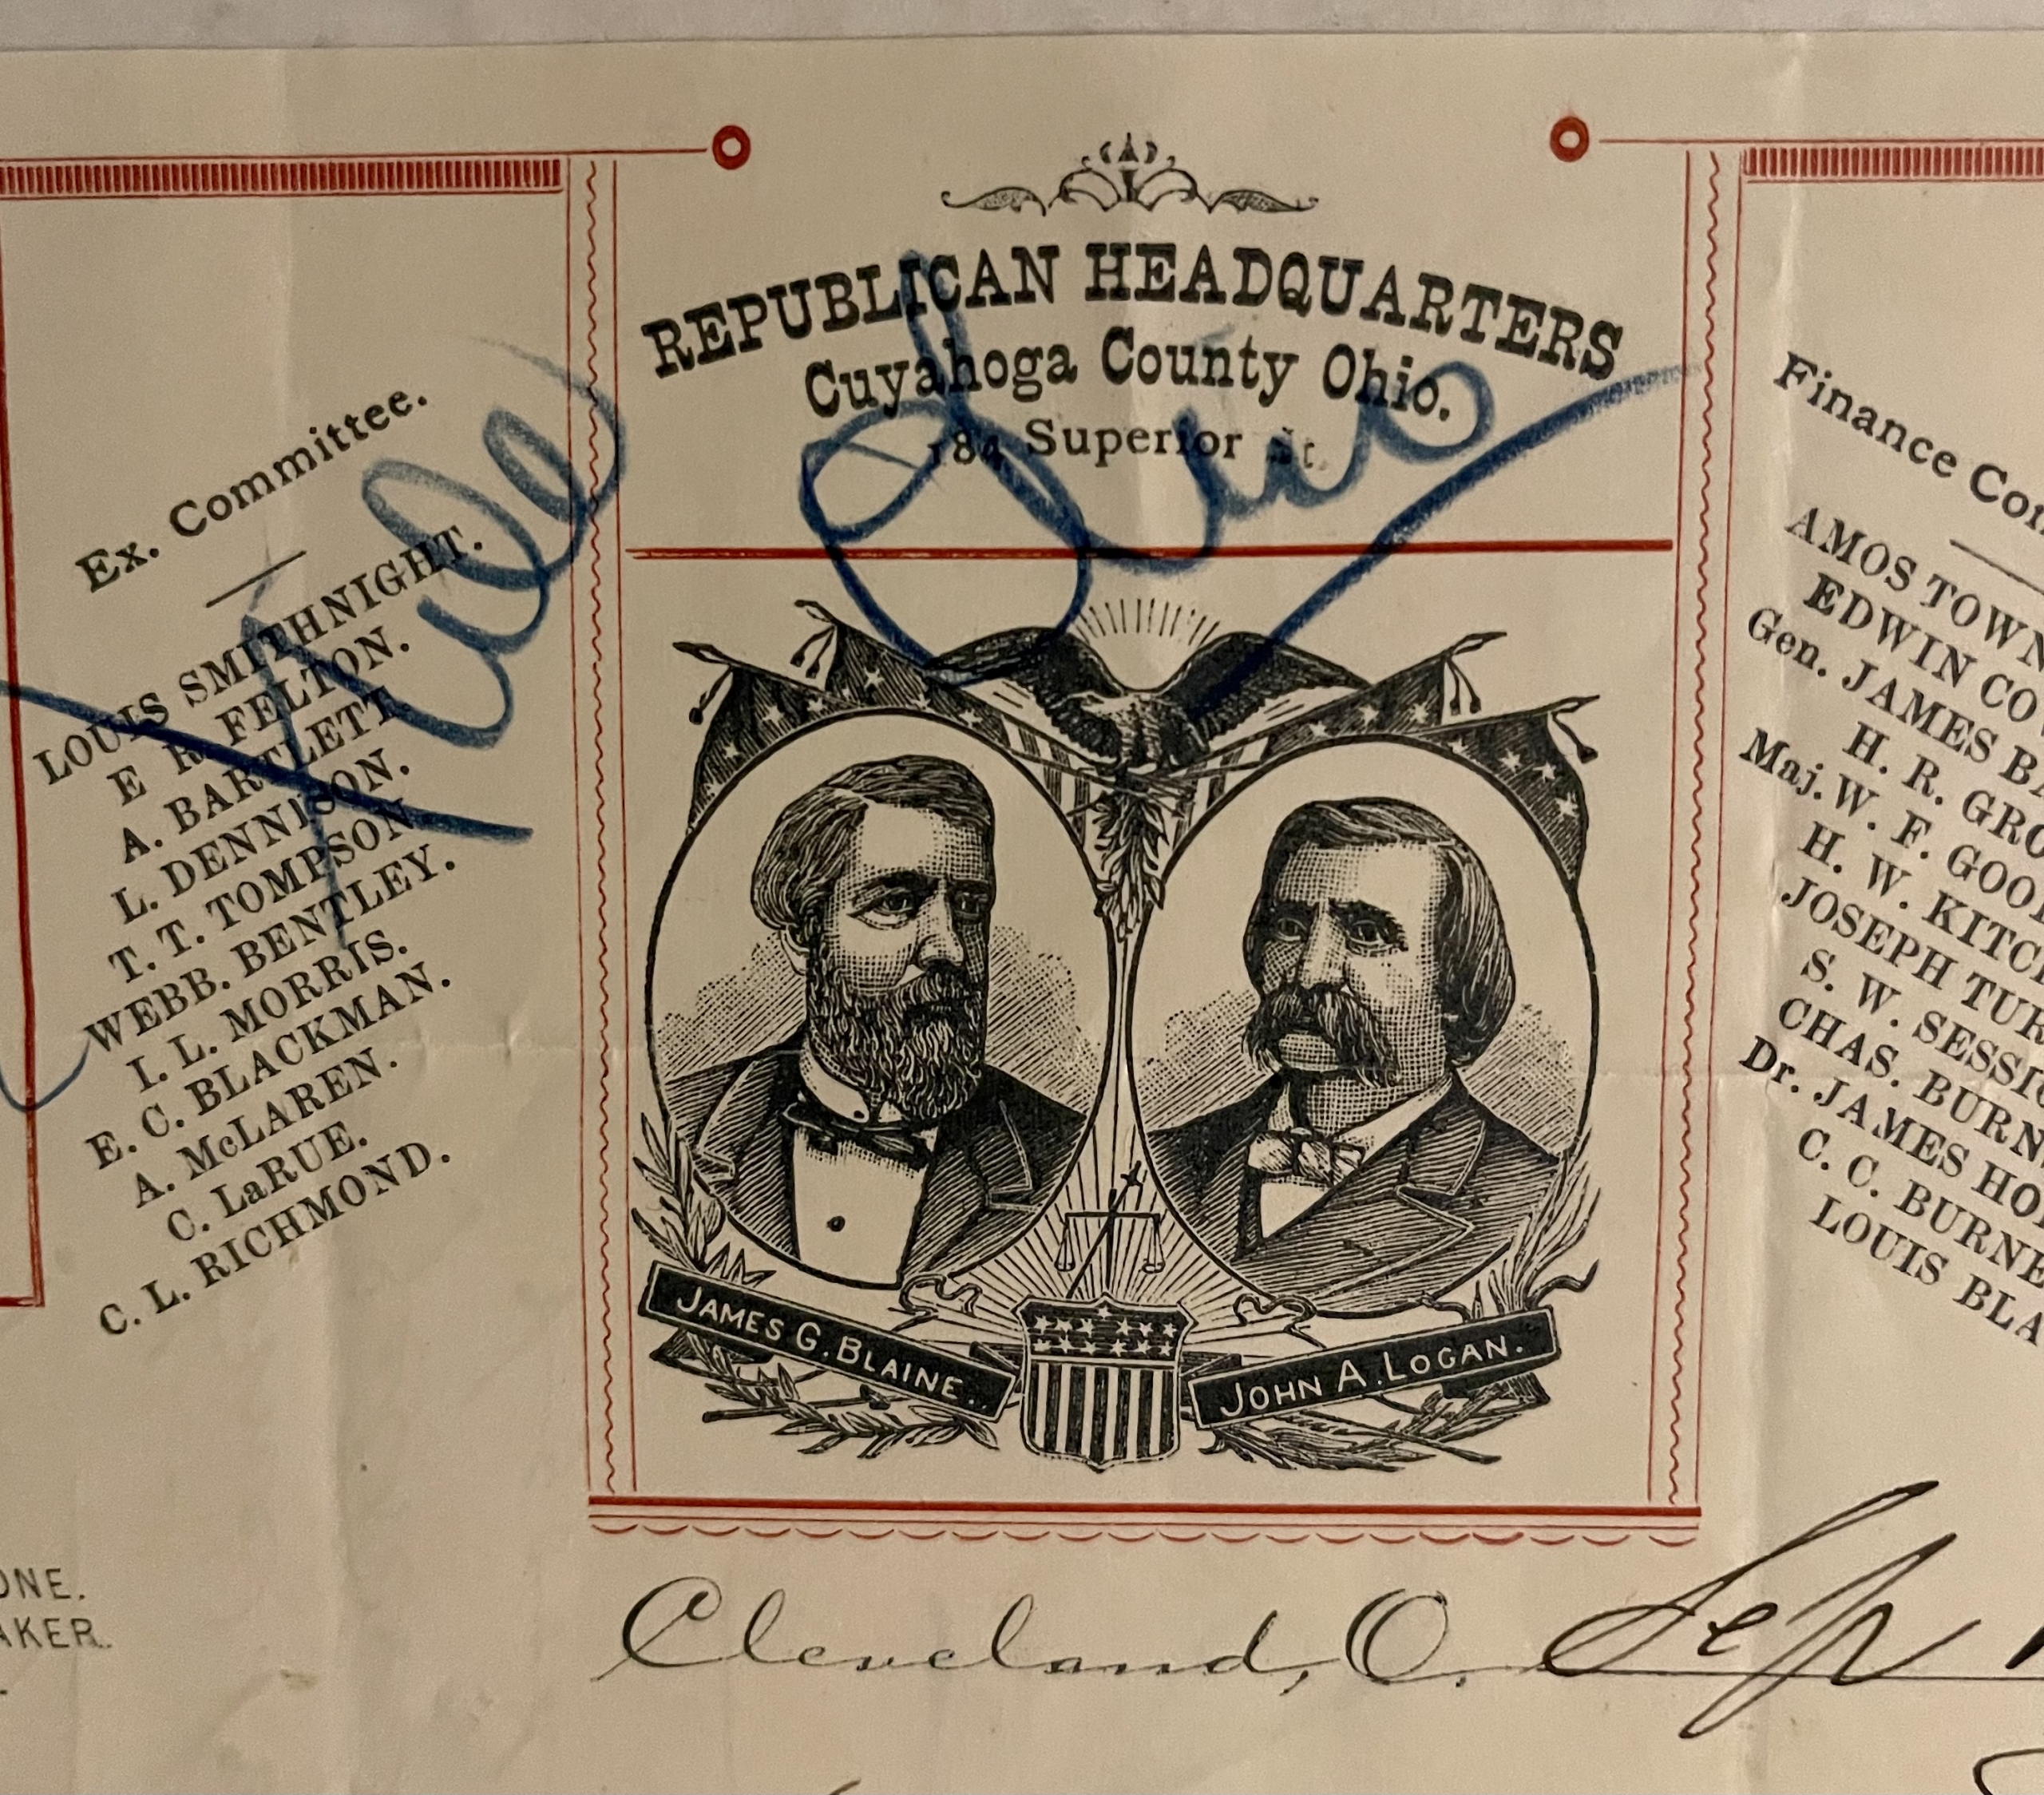 REPUBLICAN HEADQUARTERS
Cuyahoga County Ohio.
184 Superior St.
Ex. Committee.
LOUIS SMITHNIGHT.
E R. FELTON.
A. BARTLETT.
L. DENNISON.
T. T. TOMPSON.
WEBB. BENTLEY.
I. L. MORRIS.
E. C. BLACKMAN.
A. McLAREN.
C. LaRUE.
C. L. RICHMOND.
Finance Com
AMOS TOWN
EDWIN CO
Gen. JAMES BA
H. R. GRO
Maj. W. F. GOO
H. W. KITC
JOSEPH TUR
S. W. SESSI
CHAS. BURN
Dr. JAMES HO
C. C. BURNE
LOUIS BLA
JAMES G. BLAINE.
JOHN A. LOGAN.
ONE.
AKER.
Cleveland, O. Sep